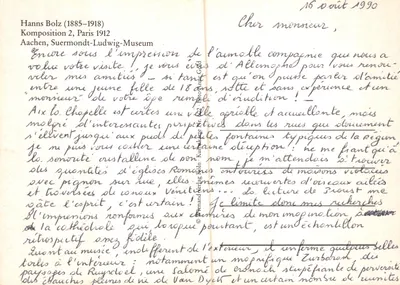 Hanns Bolz (1885–1918)
Komposition 2, Paris 1912
Aachen, Suermondt-Ludwig-Museum
16 août 1990
Cher monsieur,
Encore sous l'impression de l'aimable compagnie que nous a
valu votre visite, je vous écris d'Allemagne pour vous renou-
veler mes amitiés – si tant est qu'on puisse parler d'amitié
entre une jeune fille de 18 ans, sotte et sans expérience et un
monsieur de votre âge rempli d'érudition ! –
Aix la Chapelle est certes une ville agréable et accueillante, mais
malgré d'intéressantes perspectives dans les rues qui doucement
s'élèvent jusqu'au pied de petites fontaines typiques de la région
je ne puis vous cacher une certaine déception : ne me fiant qu'à
la sonorité cristalline de son nom, je m'attendais à trouver
des quantités d'églises Romanes entourées de maisons
avec pignon sur rue, elles-mêmes
et traversées de canaux La lecture de Proust me
gâte l'esprit, c'est certain ! Je limite donc mes recherches
d'impressions conformes aux chimères de mon imagination, à
la cathédrale qui, lorsque pourtant, est un échantillon
rétrospectif assez fidèle.
Quant au musée, indifférent de l'extérieur, il renferme quelques belles
toiles à l'intérieur ; notamment un magnifique Zurbaran, des
paysages de Ruysdael, une Salomé de Cranach stupéfiante de perversité
des ébauches pleines de vie de Van Dyck et un certain nombre de